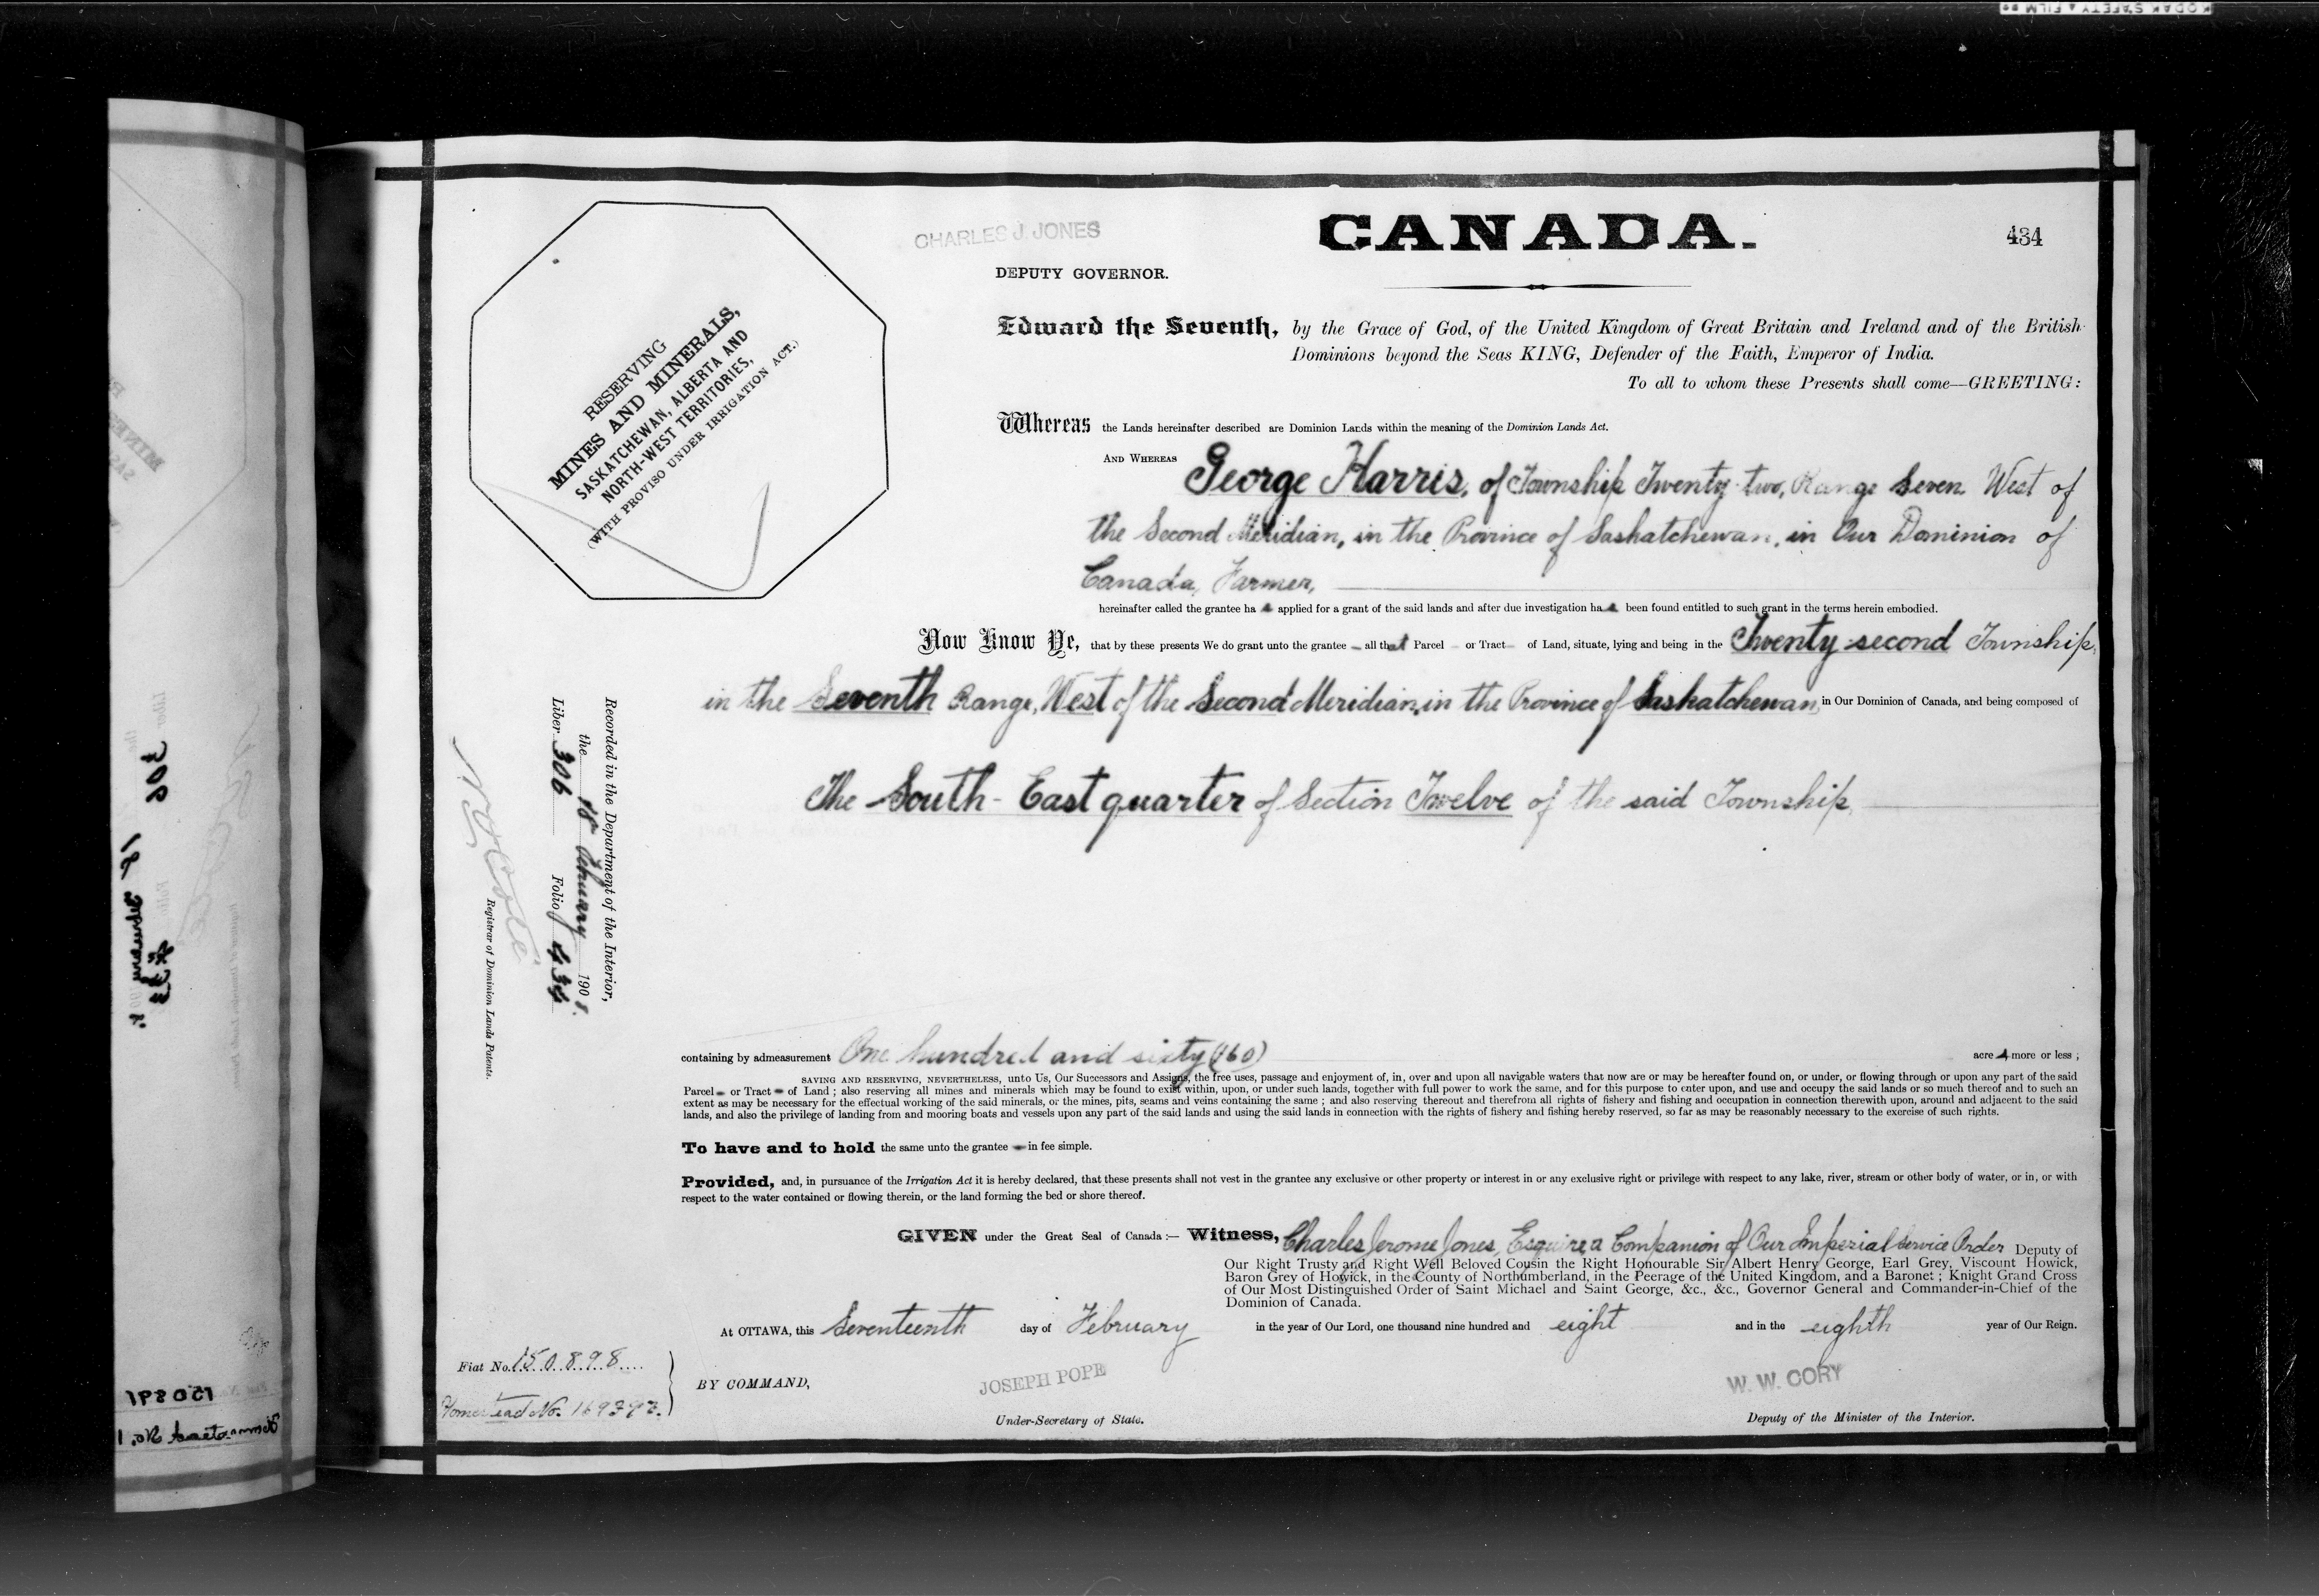 CHARLES J. JONES
CANADA.
434
DEPUTY GOVERNOR.
RESERVING
MINES AND MINERALS,
SASKATCHEWAN, ALBERTA AND
NORTH-WEST TERRITORIES,
(WITH PROVISO UNDER IRRIGATION ACT.)
Edward the Seventh, by the Grace of God, of the United Kingdom of Great Britain and Ireland and of the British
Dominions beyond the Seas KING, Defender of the Faith, Emperor of India.
To all to whom these Presents shall come—GREETING:
Whereas the Lands hereinafter described are Dominion Lands within the meaning of the Dominion Lands Act.
AND WHEREAS George Harris, of Township Twenty-two, Range Seven West of
the Second Meridian, in the Province of Saskatchewan, in Our Dominion of
Canada, Farmer,
hereinafter called the grantee has applied for a grant of the said lands and after due investigation has been found entitled to such grant in the terms herein embodied.
Now Know Ye, that by these presents We do grant unto the grantee all that Parcel or Tract of Land, situate, lying and being in the Twenty-second Township,
in the Seventh Range, West of the Second Meridian, in the Province of Saskatchewan, in Our Dominion of Canada, and being composed of
The South-East quarter of Section Twelve of the said Township,
Recorded in the Department of the Interior,
the 18 February 1908.
Liber 306 Folio 434
Registrar of Dominion Lands Patents.
containing by admeasurement One hundred and sixty (160) acres more or less ;
SAVING AND RESERVING, NEVERTHELESS, unto Us, Our Successors and Assigns, the free uses, passage and enjoyment of, in, over and upon all navigable waters that now are or may be hereafter found on, or under, or flowing through or upon any part of the said
Parcel or Tract of Land ; also reserving all mines and minerals which may be found to exist within, upon, or under such lands, together with full power to work the same, and for this purpose to enter upon, and use and occupy the said lands or so much thereof and to such an
extent as may be necessary for the effectual working of the said minerals, or the mines, pits, seams and veins containing the same ; and also reserving thereout and therefrom all rights of fishery and fishing and occupation in connection therewith upon, around and adjacent to the said
lands, and also the privilege of landing from and mooring boats and vessels upon any part of the said lands and using the said lands in connection with the rights of fishery and fishing hereby reserved, so far as may be reasonably necessary to the exercise of such rights.
To have and to hold the same unto the grantee in fee simple.
Provided, and, in pursuance of the Irrigation Act it is hereby declared, that these presents shall not vest in the grantee any exclusive or other property or interest in or any exclusive right or privilege with respect to any lake, river, stream or other body of water, or in, or with
respect to the water contained or flowing therein, or the land forming the bed or shore thereof.
GIVEN under the Great Seal of Canada :— Witness, Charles Jerome Jones, Esquire, a Companion of Our Imperial Service Order Deputy of
Our Right Trusty and Right Well Beloved Cousin the Right Honourable Sir Albert Henry George, Earl Grey, Viscount Howick,
Baron Grey of Howick, in the County of Northumberland, in the Peerage of the United Kingdom, and a Baronet ; Knight Grand Cross
of Our Most Distinguished Order of Saint Michael and Saint George, &c., &c., Governor General and Commander-in-Chief of the
Dominion of Canada.
At OTTAWA, this Seventeenth day of February in the year of Our Lord, one thousand nine hundred and eight and in the eighth year of Our Reign.
Fiat No. 150898
BY COMMAND,
JOSEPH POPE
W. W. CORY
Under-Secretary of State.
Deputy of the Minister of the Interior.
Homestead No.
306
150891
Homestead No. 1